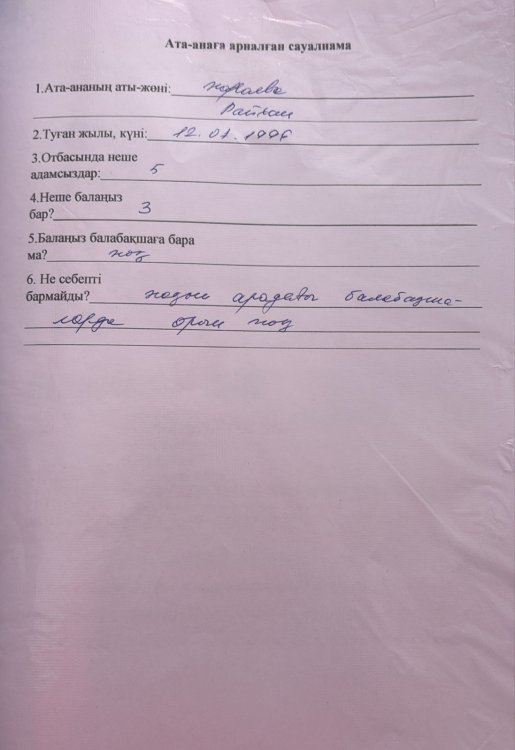 Ата-анаға арналған сауалнама
1.Ата-ананың аты-жөні:
Райхан
2.Туған жылы, күні: 12.01.1996
3.Отбасында неше
адамсыздар: 5
4.Неше балаңыз
бар? 3
5.Балаңыз балабақшаға бара
ма? жоқ
6. Не себепті
бармайды? жақын арадағы балабақша-
ларда орын жоқ